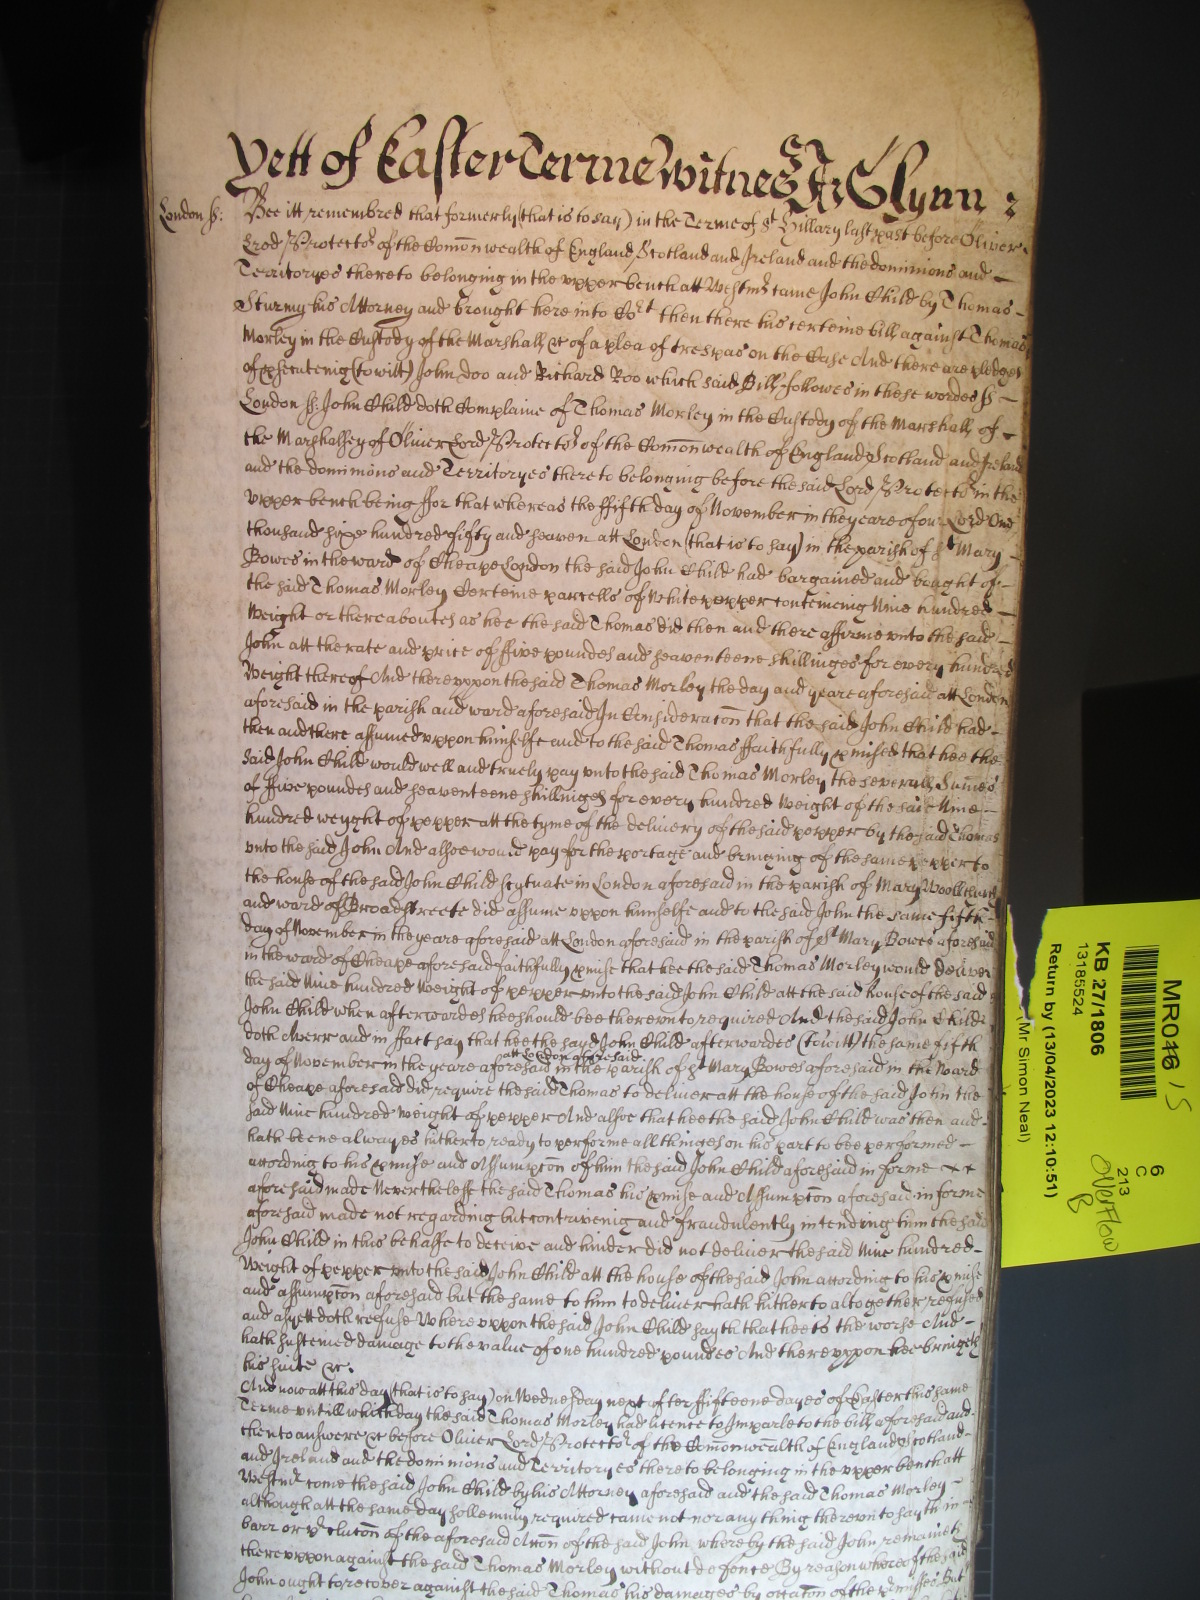 Yett of Easter Terme Witnes Jo Glynn
London ss: Bee itt remembred that formerly (that is to say) in the Terme of St Hillary last past before Oliver
Lord Protector of the Comon wealth of England Scotland and Ireland and the dominions and
Territoryes thereto belonging in the upper bench att Westmr came John Child by Thomas
Sturmy his Attorney and brought here into Cort then there his certeine bill against Thomas
Morley in the Custody of the Marshall &c of a plea of trespas on the Case And there are pledges
of psecuteing (to witt) John Doo and Richard Roo which said Bill followes in these wordes ss
London ss: John Child doth Complaine of Thomas Morley in the Custody of the Marshall of
the Marshallsey of Oliver Lord Protector of the Comon wealth of England Scotland and Ireland
and the dominions and Territoryes thereto belonging before the said Lord Protector in the
upper bench being ffor that whereas the ffifth day of November in the yeare of our Lord One
thousand sixe hundred fifty and seaven att London (that is to say) in the parish of St Mary
Bowes in the ward of Cheape London the said John Child had bargained and bought of
the said Thomas Morley Certeine parcells of White pepper conteineing Nine hundred
Weight or thereaboutes as hee the said Thomas did then and there affirme unto the said
John att the rate and price of ffive poundes and seaventeene shillinges for every hundred
Weight thereof And thereuppon the said Thomas Morley the day and yeare aforesaid att London
aforesaid in the parish and ward aforesaid In Consideracon that the said John Child had
then and there assumed uppon himselfe and to the said Thomas ffaithfully pmised that hee the
said John Child would well and truely pay unto the said Thomas Morley the severall Sumes
of ffive poundes and seaventeene shillinges for every hundred Weight of the said Nine
hundred weyght of pepper att the tyme of the delivery of the said pepper by the said Thomas
unto the said John And alsoe would pay for the portage and bringing of the same pepper to
the house of the said John Child scytuate in London aforesaid in the parish of Mary Woollchurch
and ward of Broadstreete did assume uppon himselfe and to the said John the same fifth
day of November in the yeare aforesaid att London aforesaid in the parish of St Mary Bowes aforesaid
in the ward of Cheape aforesaid faithfully pmise that hee the said Thomas Morley would deliver
the said Nine hundred Weight of pepper unto the said John Child att the said house of the said
John Child when afterwardes hee should bee thereunto required And the said John Child
doth Averr and in ffact say that hee the sayd John Child afterwardes (to witt) the same fifth
day of November in the yeare aforesaid att London aforesaid in the parish of St Mary Bowes aforesaid in the Ward
of Cheape aforesaid did require the said Thomas to deliver att the house of the said John the
said Nine hundred Weight of pepper And alsoe that hee the said John Child was then and
hath beene alwayes hitherto ready to performe all thinges on his part to bee performed
according to his pmise and Assumpcon of him the said John Child aforesaid in forme
aforesaid made Neverthelesse the said Thomas his pmise and Assumpcon aforesaid in forme
aforesaid made not regarding but contriveing and fraudulently intending him the said
John Child in this behalfe to deceive and hinder did not deliver the said Nine hundred
Weight of pepper unto the said John Child att the house of the said John according to his pmise
and assumpcon aforesaid but the same to him to deliver hath hitherto altogether refused
and as yett doth refuse Whereuppon the said John Child sayth that hee is the worse And
hath susteined damage to the value of one hundred poundes And thereuppon hee bringeth
his suite &c.
And now att this day (that is to say) on Wednesday next after ffifteene dayes of Easter this same
Terme untill which day the said Thomas Morley had licence to Imparle to the bill aforesaid and
then to answere &c before Oliver Lord Protector of the Comon wealth of England Scotland
and Ireland and the dominions and Territoryes thereto belonging in the upper bench att
Westmr come the said John Child by his Attorney aforesaid and the said Thomas Morley
although att the same day sollemnly required came not nor any thing thereunto sayth in
barr or pclucon of the aforesaid Accon of the said John whereby the said John remaineth
thereuppon against the said Thomas Morley without defence By reason whereof the said
John ought to recover against the said Thomas his damages by occacon of the pmisses But
MR046 / S
KB 27/1806
13185524
Return by (13/04/2023 12:10:51)
(Mr Simon Neal)
6
C
213
overflow
B